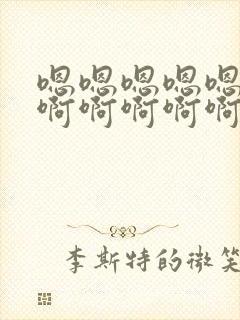 嗯嗯嗯嗯嗯
啊啊啊啊啊
李斯特的微笑